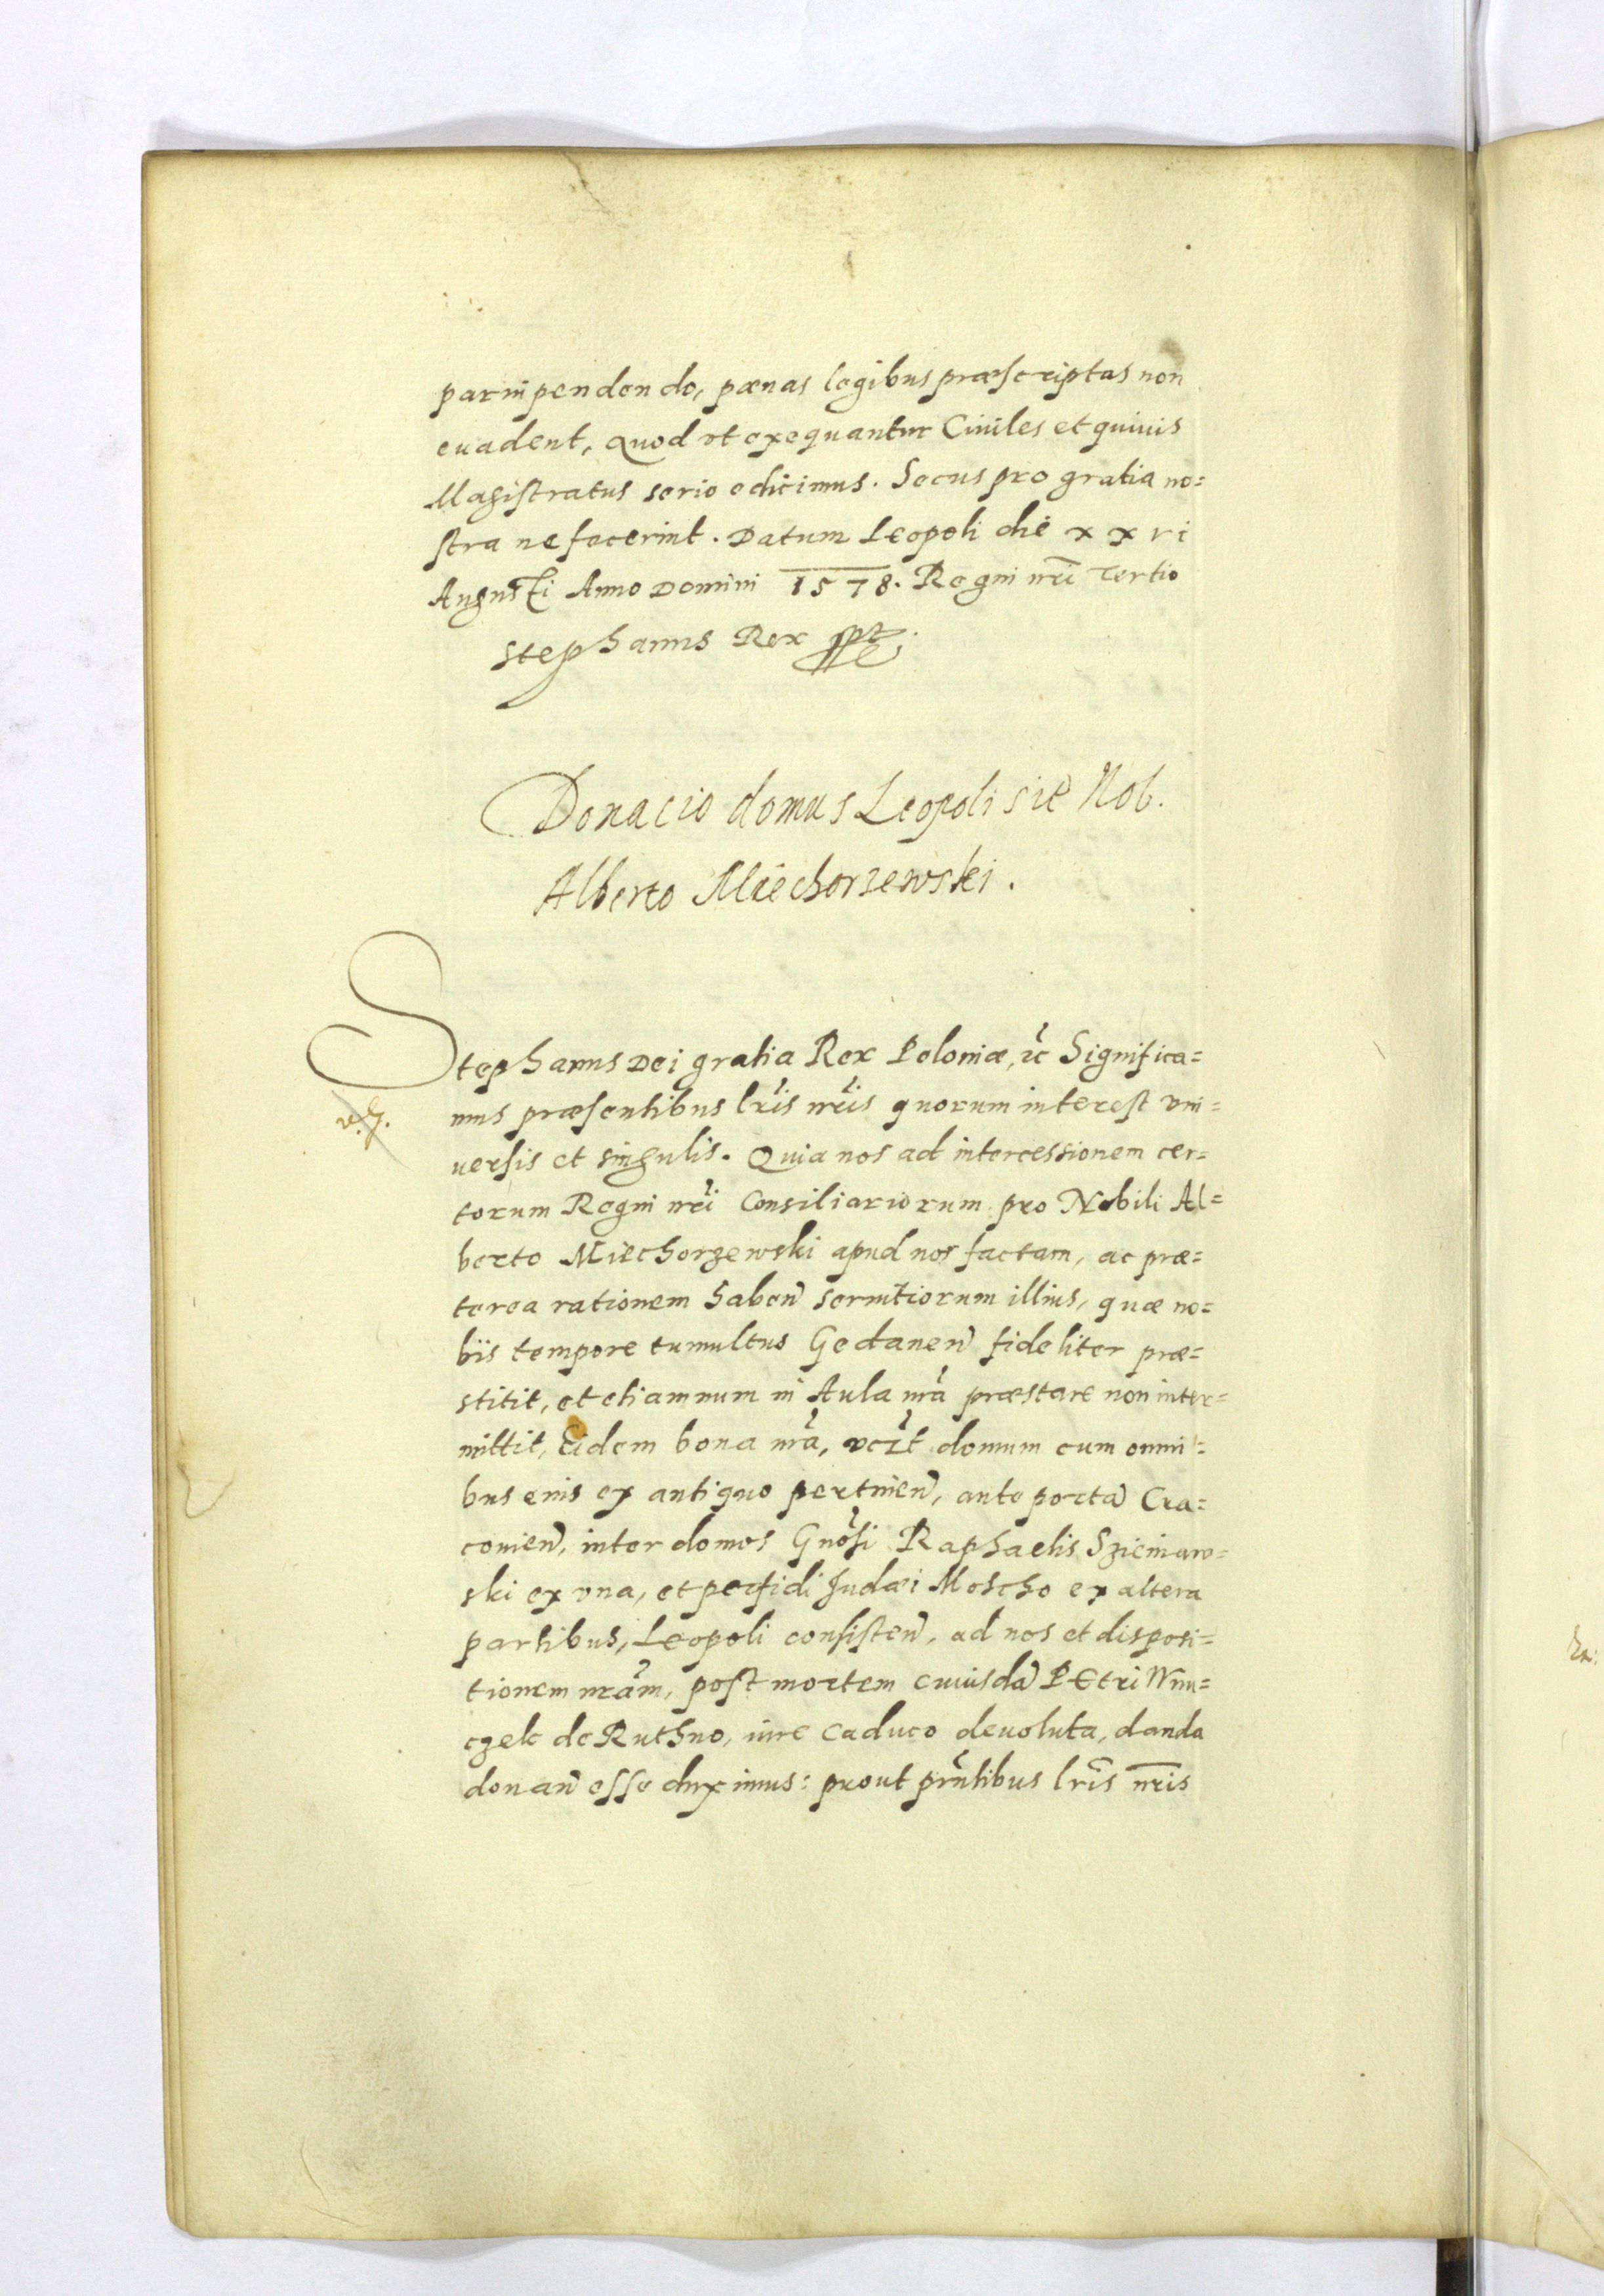 parvipendendo, pœnas legibus præscriptas non
euadent, Quod vt exequantur Ciuiles et quiuis
Magistratus serio edicimus. Secus pro gratia no=
stra ne fecerint. Datum Leopoli die xxvi
Augusti Anno Domini 1578. Regni nri Tertio
Stephanus Rex
Donacio domus Leopoli sitę Nob.
Alberto Miechorzewski.
Stephanus Dei gratia Rex Poloniæ, ꝛc Significa=
mus præsentibus lris nris quorum interest vni=
uersis et singulis. Quia nos ad intercessionem cer=
torum Regni nri Consiliariorum pro Nobili Al=
berto Miechorzewski apud nos factam, ac præ=
terea rationem haben seruitiorum illius, quæ no=
bis tempore tumultus Gedanen fideliter præ=
stitit, et etiamnum in Aula nra præstare non inter=
mittit, Eidem bona nra, vczt domum cum omni=
bus eius ex antiquo pertinen, ante porta Cra=
couien, inter domos Gnosi Raphaelis Szieniaw=
ski ex vna, et perfidi Judæi Moscho ex altera
partibus, Leopoli consisten, ad nos et disposi=
tionem nram, post mortem cuiusda Petri Wnu=
czek de Ruthno, iure caduco deuoluta, danda
donan esse duximus: prout prntibus lris nris